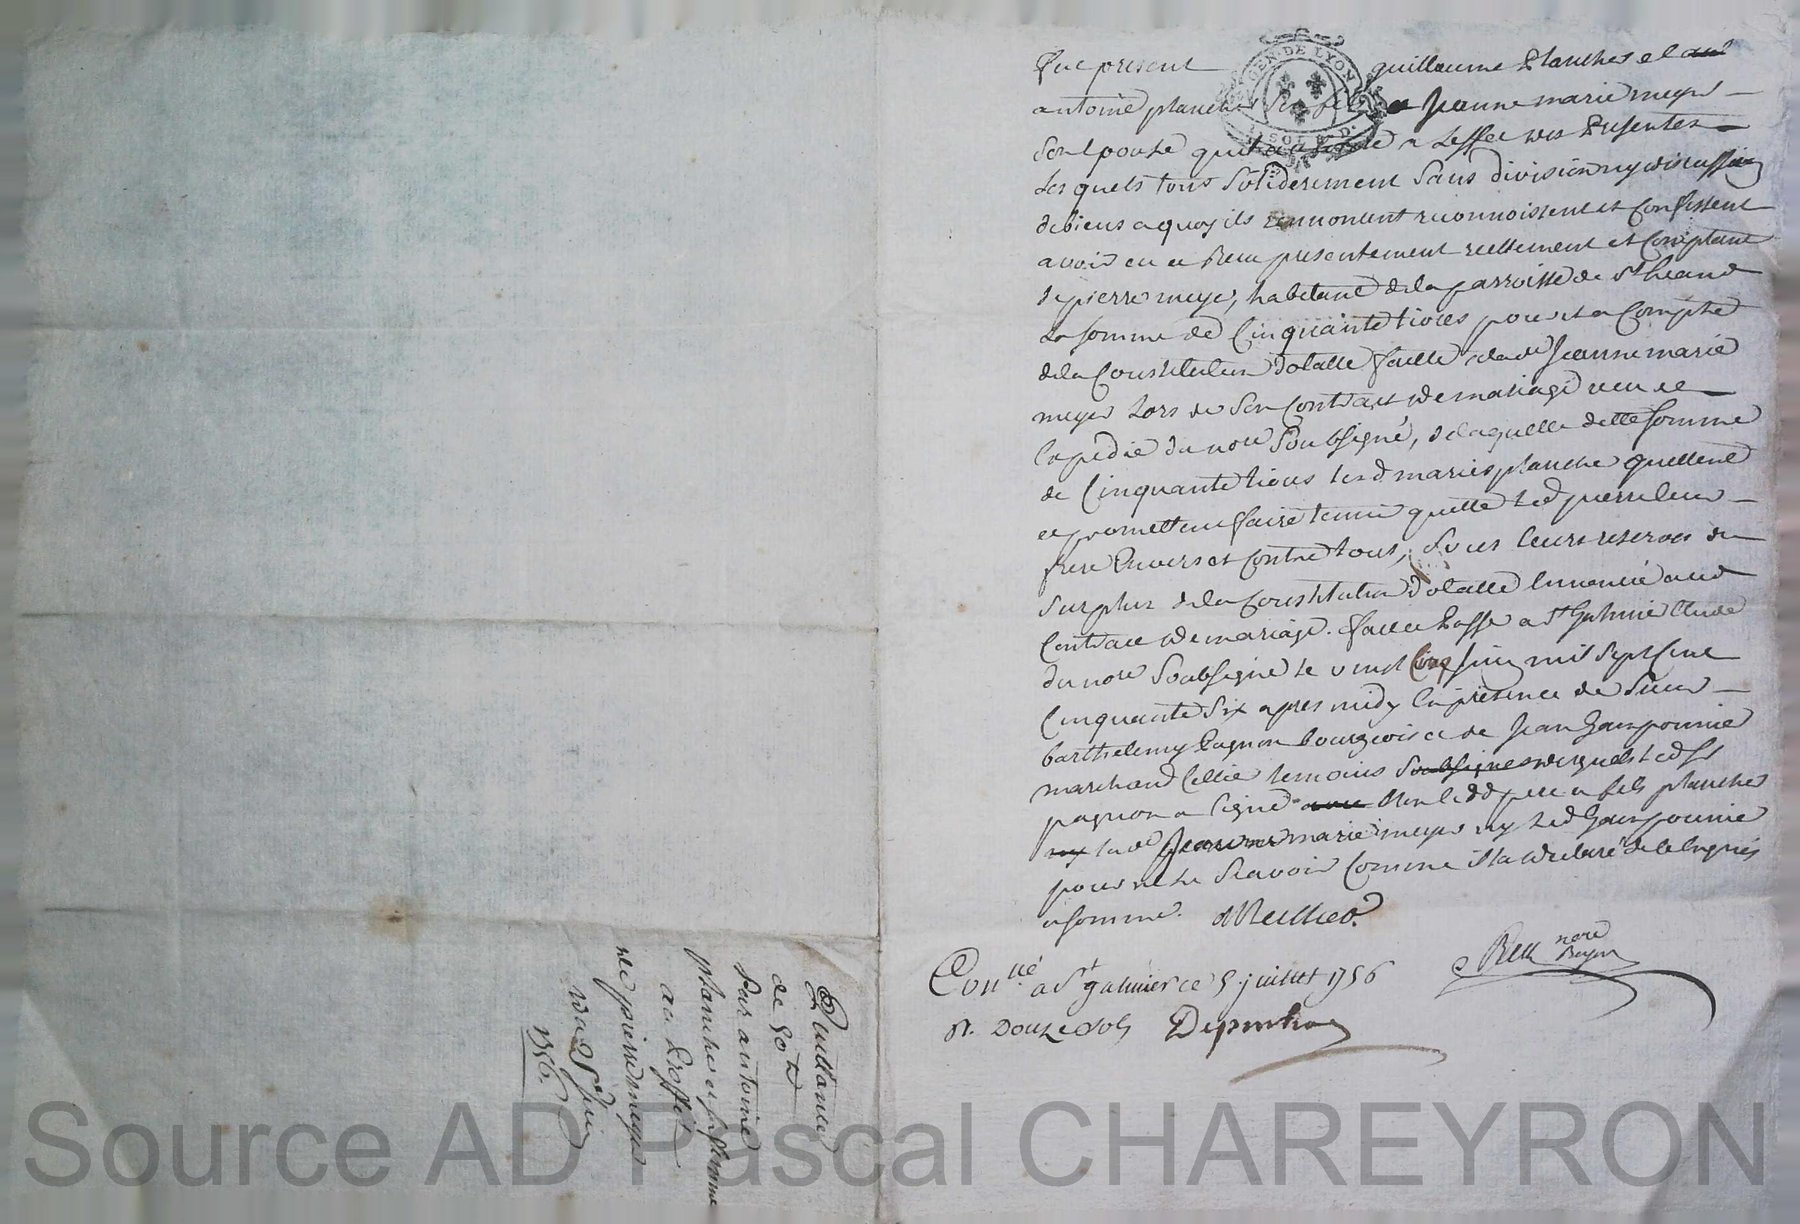 Fut present guillaume Planches et
antoine planches son fils et Jeanne marie meyer
son Epouse quil authorise a Leffet des Presentes
Lesquels tous soliderement sans division ny discussion
de biens a quoy ils renoncent reconnoissent et Confessent
avoir eu et Receu presentement reellement et Comptant
de pierre meyer, habitant de la parroisse de st heand
La somme de Cinquante livres pour et a Compte
de la Constitution dotalle faitte a lad. Jeanne marie
meyer Lors de son Contract de mariage receu et
Expedié du nore Soubsigné, de laquelle dette somme
de Cinquante livres lesd. mariés planche quittent
et promettent faire tenir quitte led pierre leur
frere Envers et Contre tous, sous leurs reserves du
surplus de la Constitution dotalle Enoncée aud
Contract de mariage. fait et Passé a St Galmier Etude
du nore Soubsigné le vingt Cinq Juin mil sept Cent
Cinquante six apres midy En presence de sieur
barthelemy Pagnon bourgeois et de Jean
marchand Cellier temoins desquels led sr
pagnon a signé non lesd pere et fils planches
lad Jeanne marie meyer ny led
pour ne le scavoir Comme ils l'a declaré de ce Enquis
et sommé.
nore Royal
Conllé a St galmier ce 5 juillet 1756
R. Douze sols
Quittance
de 50 lt
Par antoine
planches et sa femme
au proffit
de pierre meyer
du 25 Juin
1756.
GEN. DE LYON
Source AD Pascal CHAREYRON